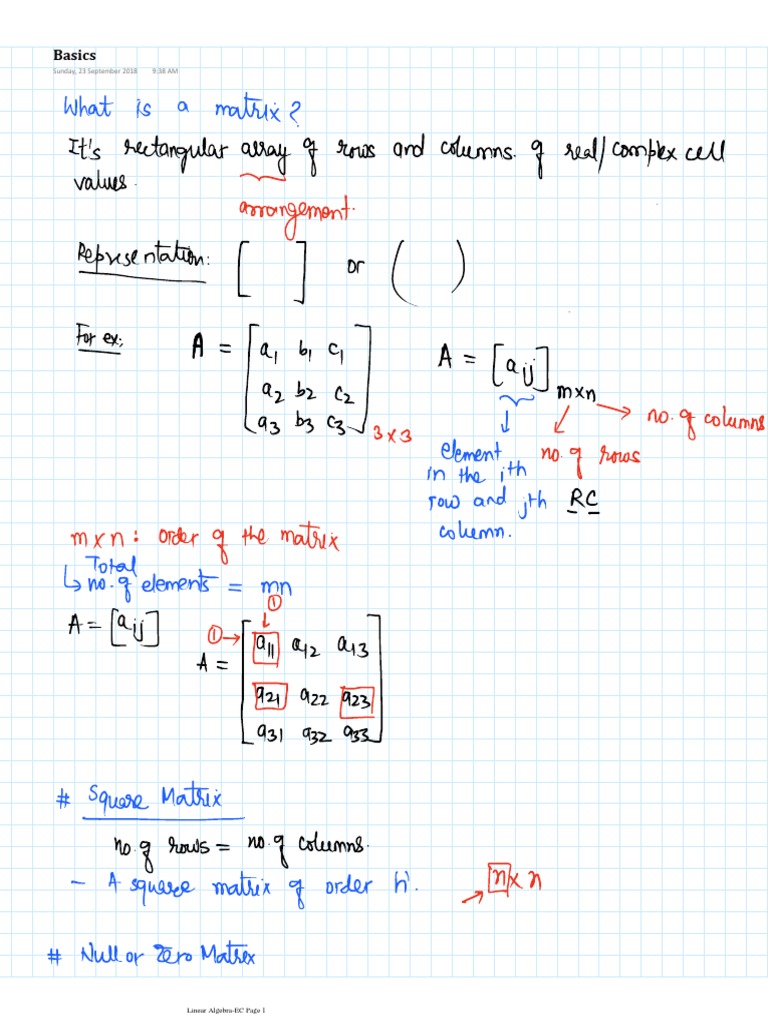 Basics
Sunday, 23 September 2018 9:38 AM
What is a matrix?
It's rectangular array of rows and columns. of real/complex cell
values.
arrangement.
Representation: [ ] or ( )
For ex: A = [a1 b1 c1
a2 b2 c2
a3 b3 c3] 3x3
A = [aij] mxn
no. of columns
no. of rows
element
in the ith
row and jth
column.
RC
mxn: order of the matrix
↳ Total no. of elements = mn
A = [aij]
① ①→
A = [a11 a12 a13
a21 a22 a23
a31 a32 a33]
# Square Matrix
no. of rows = no. of columns.
- A square matrix of order 'n'. → nxn
# Null or Zero Matrix
Linear Algebra-EC Page 1